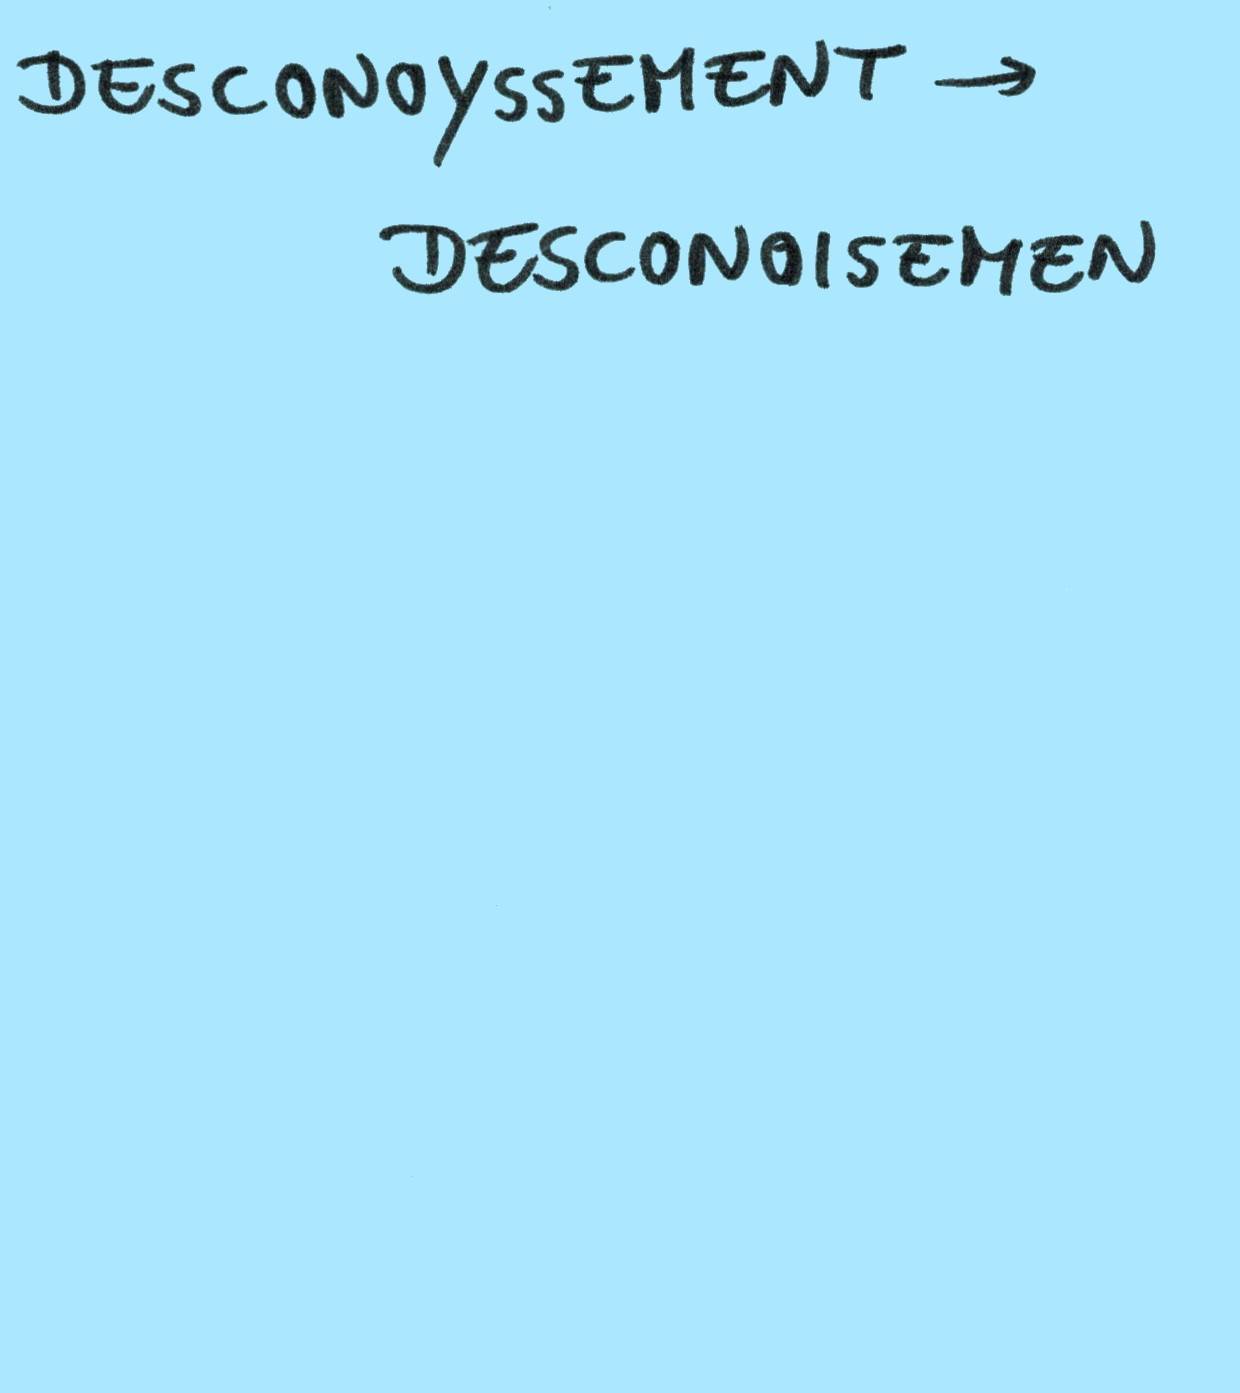 DESCONOYSSEMENT →
DESCONOISEMEN